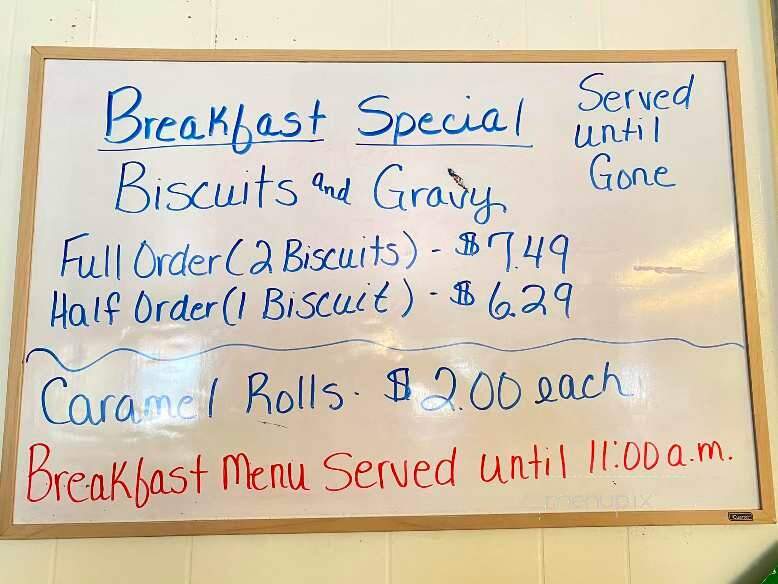 Breakfast Special
Served
until
Gone
Biscuits and Gravy
Full Order (2 Biscuits) - $7.49
Half Order (1 Biscuit) - $6.29
Caramel Rolls - $2.00 each
Breakfast Menu Served until 11:00 a.m.
menupix